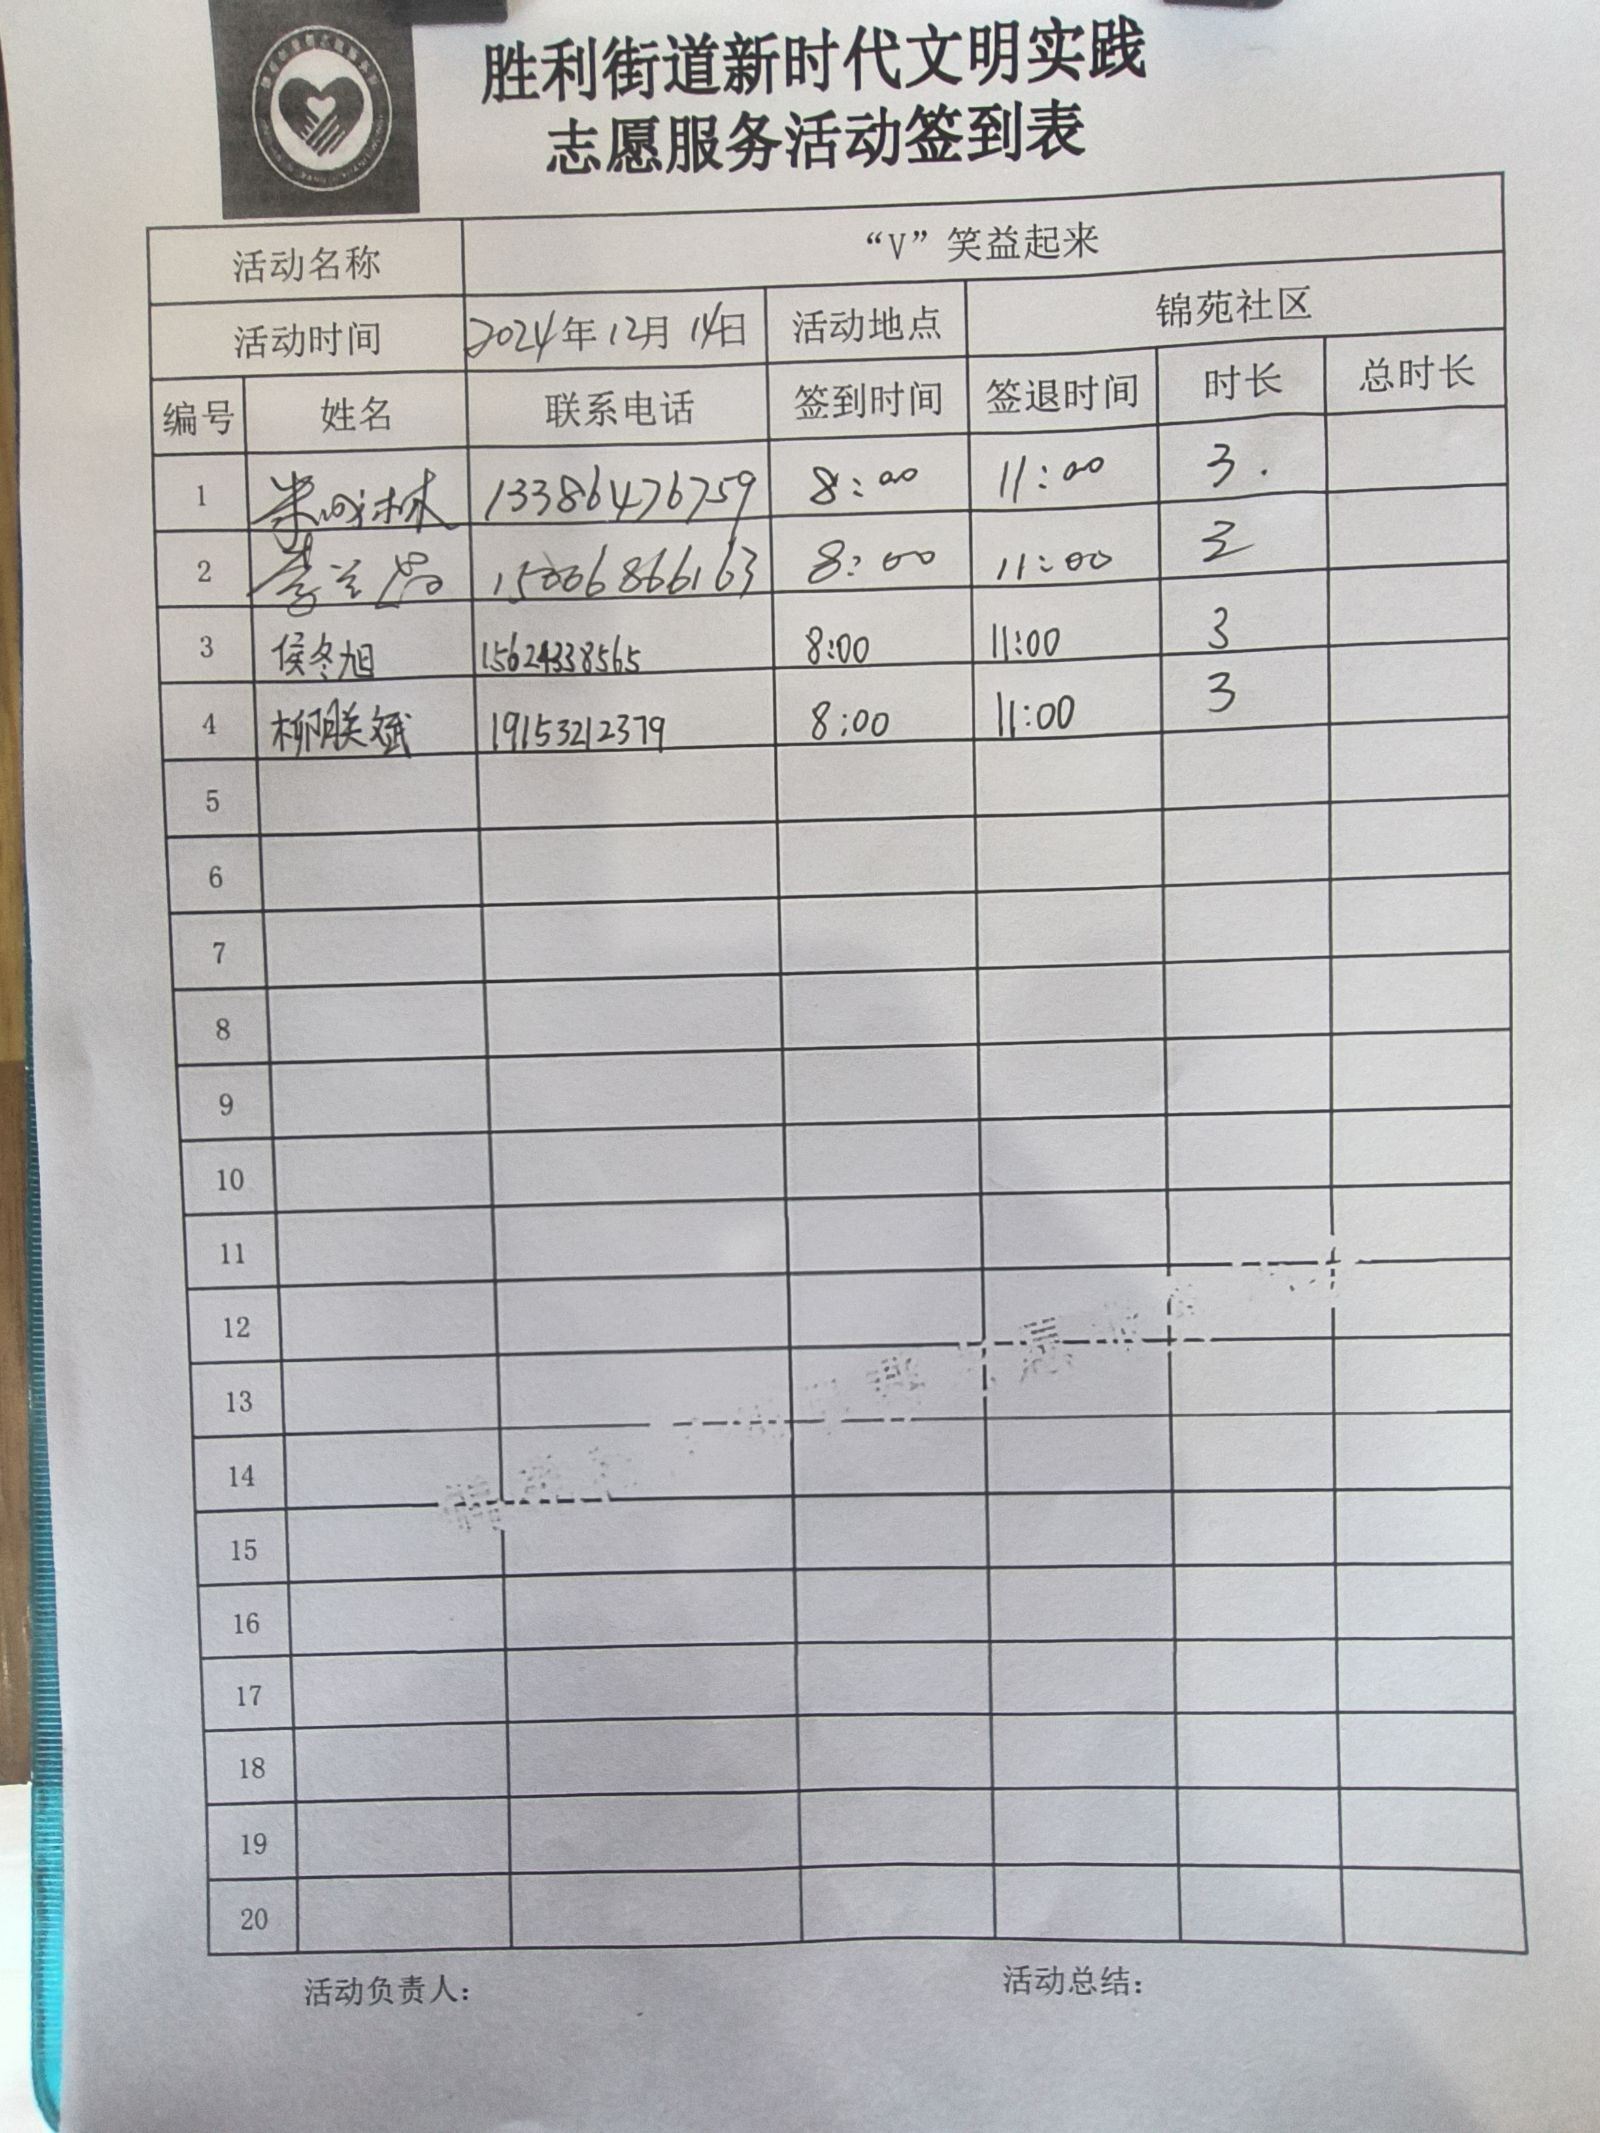 胜利街道新时代文明实践
志愿服务活动签到表
活动名称 “V”笑益起来
活动时间 2024年12月14日 活动地点 锦苑社区
编号 姓名 联系电话 签到时间 签退时间 时长 总时长
1 13386476759 8:00 11:00 3.
2 15006866163 8:00 11:00 3
3 侯冬旭 15624338565 8:00 11:00 3
4 柳朕斌 19153212379 8:00 11:00 3
5
6
7
8
9
10
11
12
13
14
15
16
17
18
19
20
活动负责人: 活动总结: